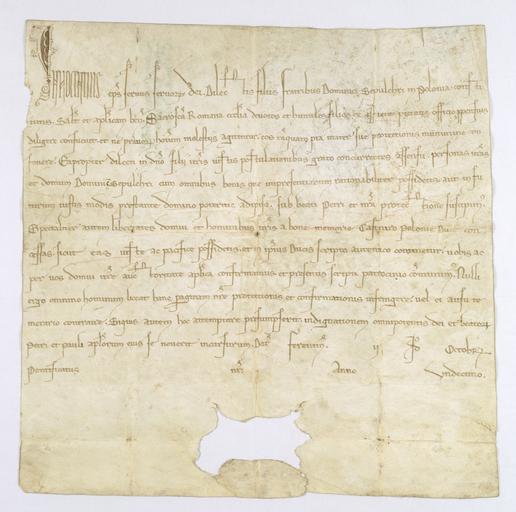 Innocentius eps servus servor dei Dilectis filiis fratribus Dominici Sepulchri in Polonia consti
tutis. Salt et aplicam ben. Sacrosca Romana ecclia devotos et humiles filios ex assuete pietatis officio propensius
diligere consuevit et ne pravor hominum molestiis agitentur eos tanquam pia mater sue protectionis munimine con
fovere. Eapropter dilecti in dno filii vris iustis postulationibus grato concurrentes assensu personas vras
et domum Dominici Sepulchri cum omnibus bonis que inpresentiarum rationabiliter possidetis aut in fu
turum iustis modis prestante domino poteritis adipisci sub beati Petri et nra protectione suscipim.
Specialiter autem libertates domui et hominibus vris a bone memorie Casimiro Polonie Duce con
cessas sicut eas iuste ac pacifice possidetis et in ipsius Ducis scripto autentico continetur vobis ac
per vos domui vre auctoritate aplica confirmamus et presentis scripti patrocinio communim. Nulli
ergo omnino hominum liceat hanc paginam nre protectionis et confirmationis infringere vel ei ausu te
merario contraire. Siquis autem hoc attemptare presumpserit indignationem omnipotentis dei et beator
Petri et Pauli aplorum eius se noverit incursurum. Dat Ferentin. ii Id Octobr
Pontificatus nri Anno Undecimo.